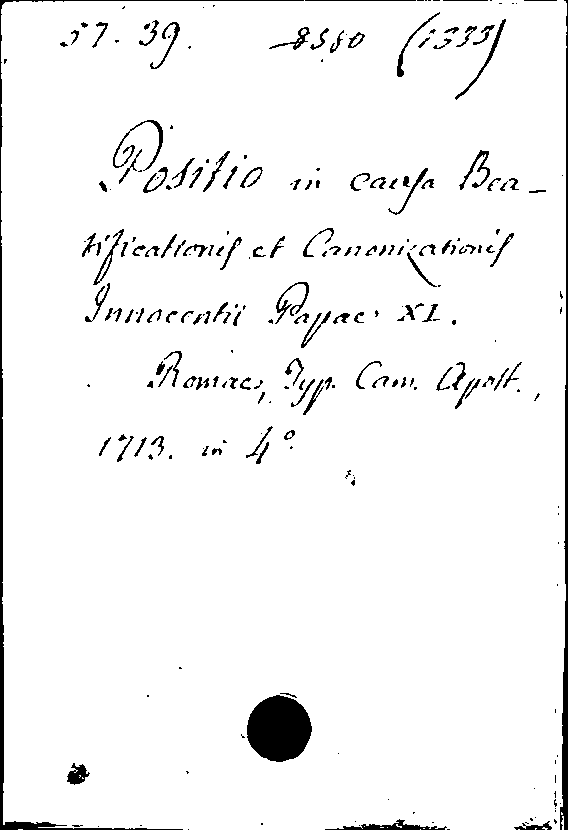 57. 39. 8580 (1333)
Positio in causa Bea-
tificationis et Canonizationis
Innocentii Papae XI.
Romae, Typ. Cam. Apost.,
1713. in 4º.